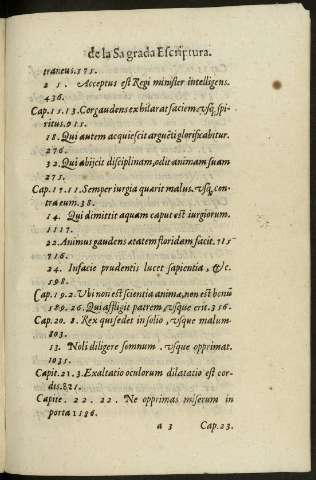 de la Sagrada Escriptura.
traneus.571.
2 5 . Acceptus est Regi minister intelligens.
436.
Cap.15.13. Cor gaudens exhilarat faciem usq, spi-
ritus.915.
18. Qui autem acquiescit arguēti glorificabitur.
276.
32. Qui abijcit disciplinam, odit animam suam
275.
Cap.17.11. Semper iurgia quarit malus. usq, con-
tra eum.38.
14. Qui dimittit aquam caput est iurgiorum.
1117.
22. Animus gaudens atatem floridam facit.715
716.
24. Infacie prudentis lucet sapientia, &c.
598.
Cap.19.2. Ubi non est scientia anima, non est bonū
589.26. Qui affligit patrem, usque erit.356.
Cap.20. 8. Rex qui sedet in solio, usque malum.
803.
13. Noli diligere somnum. usque opprimat.
1035.
Capit.21.3. Exaltatio oculorum dilatatio est cor-
dis.821.
Capite. 22. 22. Ne opprimas miserum in
porta 1586.
a 3 Cap.23.